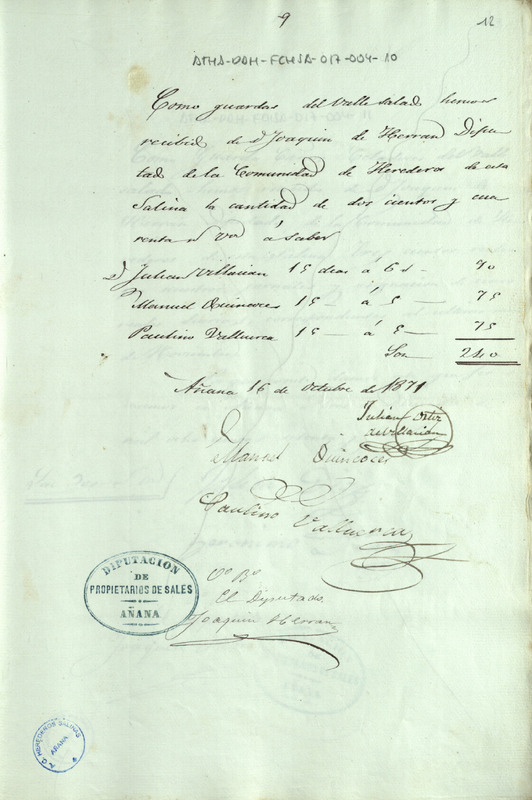 9
12
ATHA-DAH-FCHSA-017-004-10
Como guardas del Valle salado hemos
recibido de D Joaquin de Herran Dipu
tado de la Comunidad de Herederos de esta
Salina la cantidad de dos cientos y cua
renta rs vn á saber
D Julian Villacian 15 dias á 6 rs — 90
Manuel Quincoces 15 — á 5 — 75
Paulino Valluerca 15 — á 5 — 75
Son 240
Añana 16 de Octubre de 1871
Julian Ortiz
de Villacian
Manuel Quincoces
Paulino Valluerca
DIPUTACION
DE
PROPIETARIOS DE SALES
AÑANA
Vº Bº
El Diputado
Joaquin Herran
HEREDEROS SALINAS
AÑANA